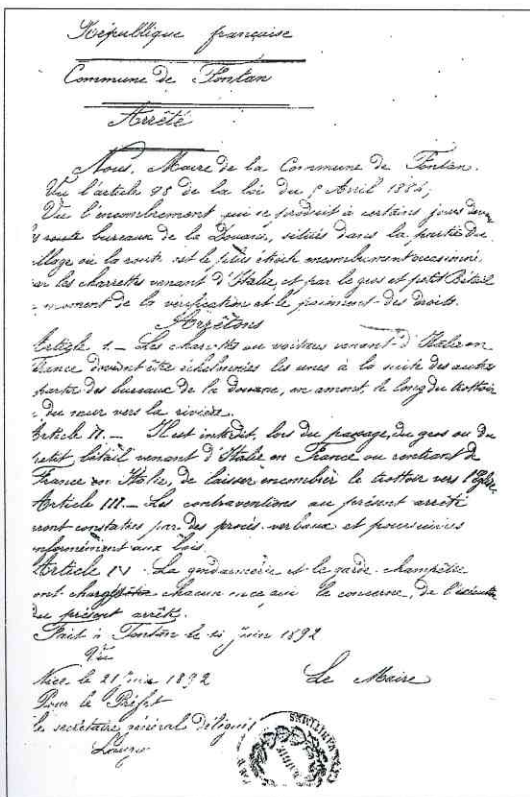 République française
Commune de Fontan
Arrêté
Nous, Maire de la Commune de Fontan.
Vu l'article 98 de la loi du 5 Avril 1884;
Vu l'encombrement qui se produit à certains jours devant
route bureaux de la Douane, situés dans la partie du
llage où la route est le plus étroite encombrement occasionné
ar les charrettes venant d'Italie, et par le gros et petit Bétail
moment de la vérification et le paiement des droits.
Arrêtons
Article 1. – Les charrettes ou voitures venant d'Italie en
rance devront être échelonnées les unes à la suite des autres
partir des bureaux de la douane, en amont, le long du trottoir
du mur vers la rivière.
Article II. – Il est interdit, lors du passage, du gros ou du
petit bétail venant d'Italie en France ou rentrant de
France en Italie, de laisser encombrer le trottoir vers l'Eglise
Article III. – Les contraventions au présent arrêté
ront constatées par des procès-verbaux et poursuivies
nformément aux lois.
Article IV. La gendarmerie et le garde champêtre
ont chargés chacun en ce qui le concerne, de l'exécution
du présent arrêté.
Fait à Fontan le juin 1892
Vu
Nice le 21 Juin 1892
Le Maire
Pour le Préfet
le secrétaire général délégué